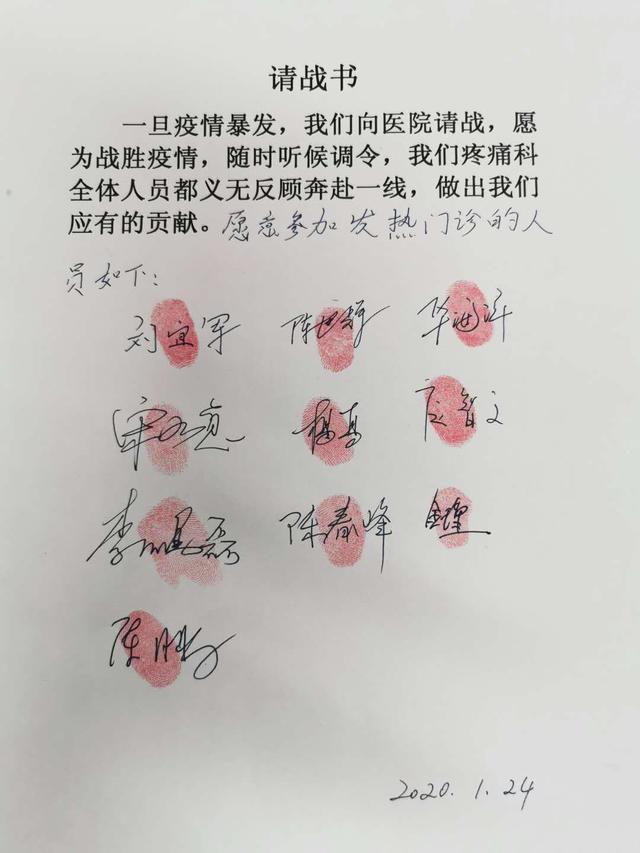 请战书
一旦疫情暴发，我们向医院请战，愿
为战胜疫情，随时听候调令，我们疼痛科
全体人员都义无反顾奔赴一线，做出我们
应有的贡献。愿意参加发热门诊的人
员如下：
刘宜军
李 磊 陈春峰
陈
2020.1.24